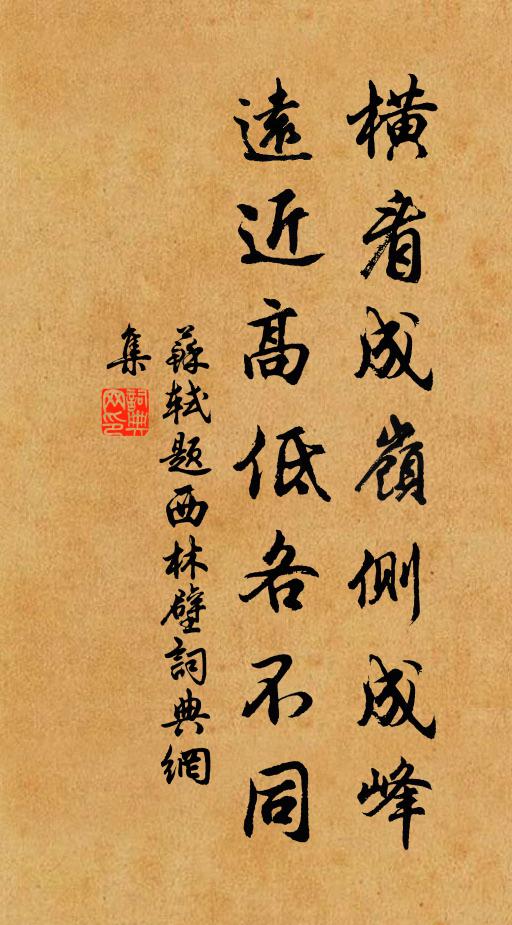 橫看成嶺側成峰
遠近高低各不同
蘇軾題西林壁詞典網
集
詞典网印